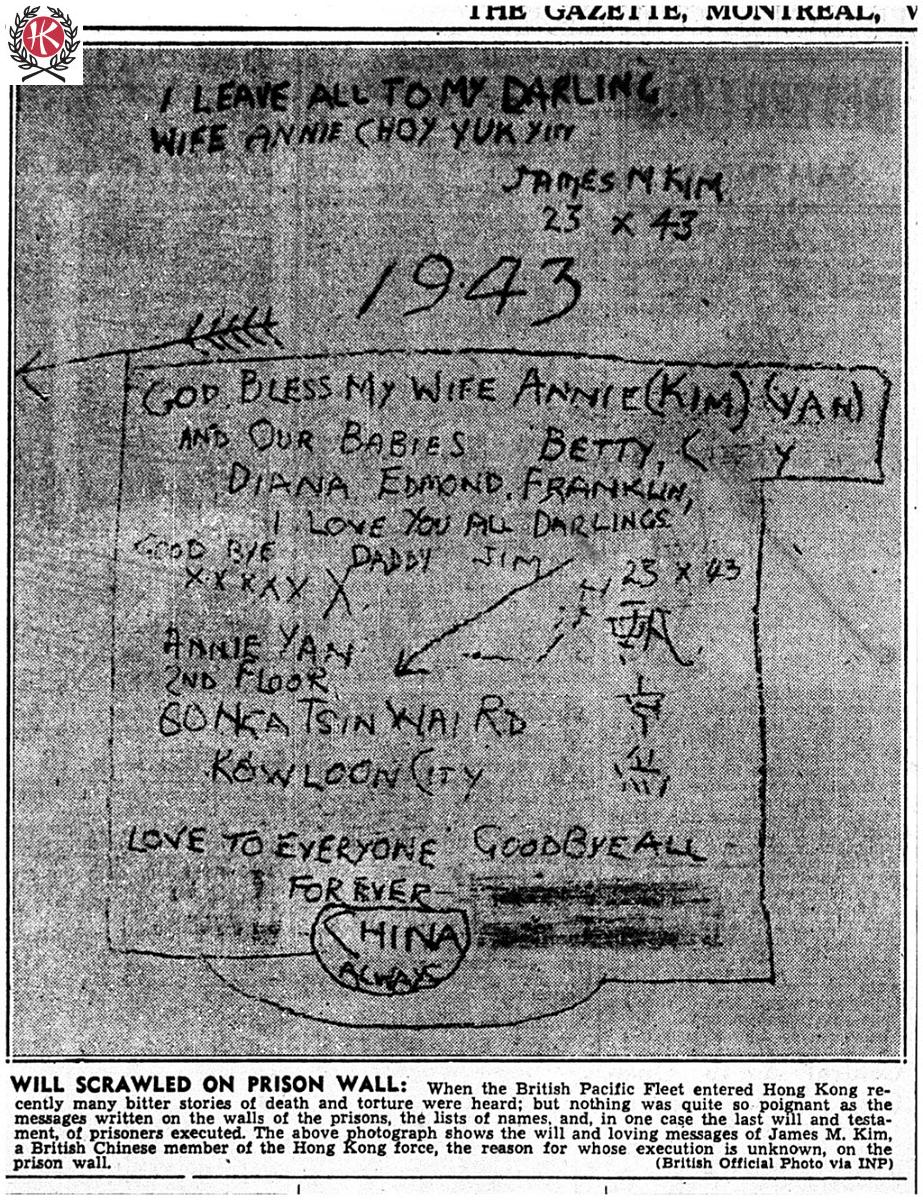 THE GAZETTE, MONTREAL,
HK
I LEAVE ALL TO MY DARLING
WIFE ANNIE CHOY YUK YIN
JAMES M KIM
23 X 43
1943
GOD BLESS MY WIFE ANNIE (KIM) (YAN)
AND OUR BABIES BETTY,
DIANA EDMOND, FRANKLIN,
I LOVE YOU ALL DARLINGS
GOOD BYE DADDY JIM
X X X X X X 23 X 43
ANNIE YAN
2ND FLOOR
60 NGA TSIN WAI RD
KOWLOON CITY
LOVE TO EVERYONE GOODBYE ALL
FOREVER
CHINA
ALWAYS
WILL SCRAWLED ON PRISON WALL: When the British Pacific Fleet entered Hong Kong re-
cently many bitter stories of death and torture were heard; but nothing was quite so poignant as the
messages written on the walls of the prisons, the lists of names, and, in one case the last will and testa-
ment, of prisoners executed. The above photograph shows the will and loving messages of James M. Kim,
a British Chinese member of the Hong Kong force, the reason for whose execution is unknown, on the
prison wall. (British Official Photo via INP)